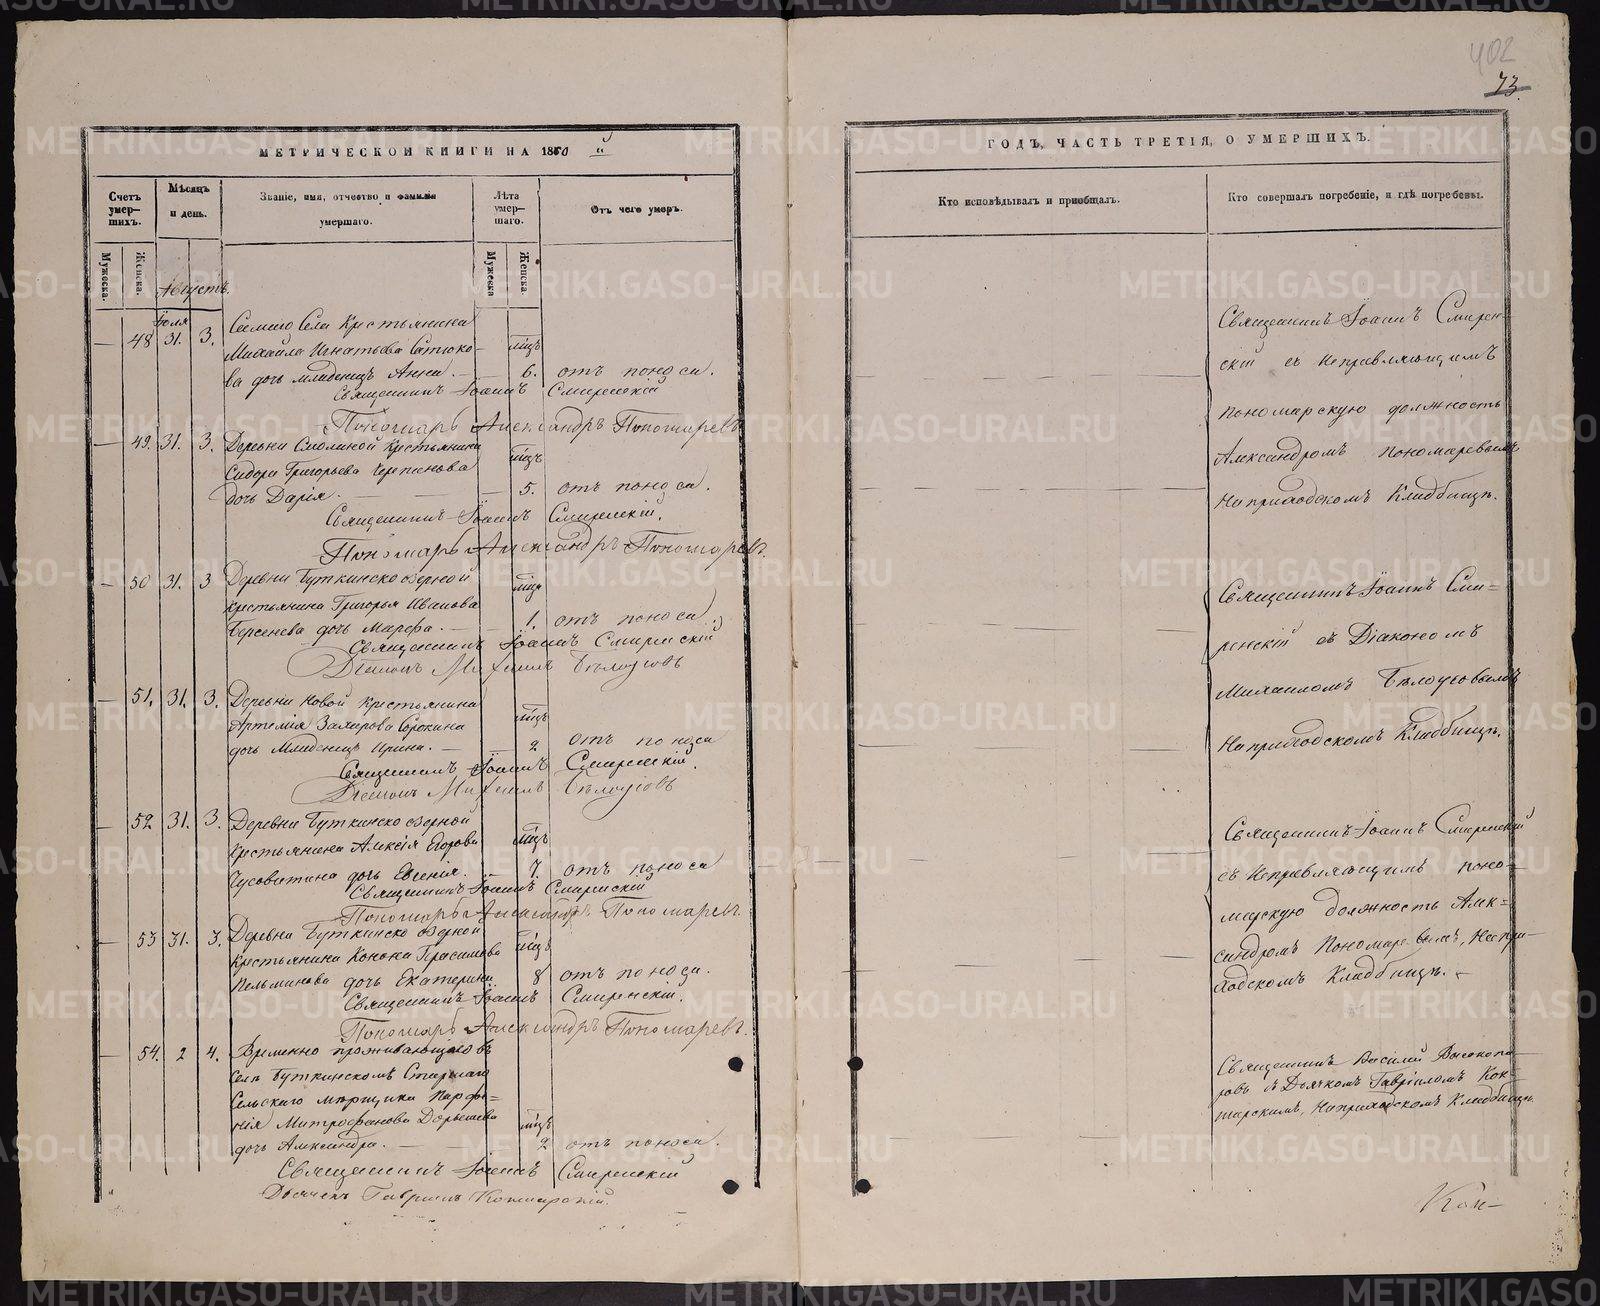 402
73.
МЕТРИЧЕСКОЙ КНИГИ НА 1860 й
Счетъ умер-шихъ.
Мѣсяцъ и день.
Званіе, имя, отчество и фамилія умершаго.
Лѣта умер-шаго.
Отъ чего умеръ.
Мужеска.
Женска.
Мужеска
Женска.
Августъ.
Іюля
48 31. 3. Сегожъ Села Крестьянина
Михайла Игнатьева Сатюко- мцъ
ва дочь младенецъ Анна. — 6. отъ поноса.
Священникъ Іоаннъ Смиренскій
Пономарь Александръ Пономаревъ
49. 31. 3. Деревни Смолиной Крестьянина
Сидора Григорьева Черепанова мцъ
дочь Дарія. — 5. отъ поноса.
Священникъ Іоаннъ Смиренскій.
Пономарь Александръ Пономаревъ.
50 31. 3 Деревни Буткинско озерной мцъ
крестьянина Григорья Иванова
Берсенева дочь Марфа. — 1. отъ поноса.
Священникъ Іоаннъ Смиренскій
Діаконъ Михаилъ Бѣлоусовъ
51. 31. 3. Деревни Новой Крестьянина
Артемія Захарова Сорокина мцъ
дочь Младенецъ Ирина. — 2 отъ поноса
Священникъ Іоаннъ Смиренскій.
Діаконъ Михаилъ Бѣлоусовъ
52 31. 3. Деревни Буткинско озерной
крестьянина Алексія Егорова мцъ
Чусовитина дочь Евгенія. 7. отъ поноса
Священникъ Іоаннъ Смиренскій
Пономарь Александръ Пономаревъ.
53 31. 3. Деревни Буткинско озерной
крестьянина Конона Герасимова мцъ
Пельминова дочь Екатерина 8 отъ поноса.
Священникъ Іоаннъ Смиренскій.
Пономарь Александръ Пономаревъ.
54. 2 4. Временно проживающаго въ
селѣ Буткинскомъ Старшаго
Сельскаго мѣрщика Парфе-
нія Митрофанова мцъ
дочь Александра. — 2 отъ поноса.
Священникъ Іоаннъ Смиренскій
Дьячекъ Гавріилъ Кокшарскій.
ГОДЪ, ЧАСТЬ ТРЕТІЯ, О УМЕРШИХЪ.
Кто исповѣдывалъ и пріобщалъ.
Кто совершалъ погребеніе, и гдѣ погребены.
Священникъ Іоаннъ Смирен-
скій съ Исправляющимъ
пономарскую должность
Александромъ Пономаревымъ
На приходскомъ Кладбищѣ.
Священникъ Іоаннъ Сми-
ренскій съ Діакономъ
Михаиломъ Бѣлоусовымъ
На приходскомъ Кладбищѣ.
Священникъ Іоаннъ Смиренскій
съ Исправляющимъ поно-
марскую должность Алек-
сандромъ Пономаревымъ, На при-
ходскомъ Кладбищѣ.
Священникъ Василій
съ Дьячкомъ Гавріиломъ Кок-
шарскимъ, На приходскомъ Кладбищѣ.
METRIKI.GASO-URAL.RU